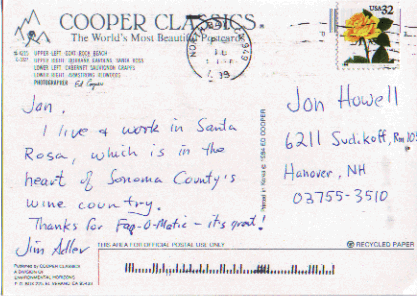 COOPER CLASSICS®
The World's Most Beautiful Postcards
UPPER LEFT: GOAT ROCK BEACH
UPPER RIGHT: BURBANK GARDENS, SANTA ROSA
LOWER LEFT: CABERNET SAUVIGNON GRAPES
LOWER RIGHT: ARMSTRONG REDWOODS
PHOTOGRAPHER Ed Cooper
USA 32
Jon,
I live & work in Santa
Rosa, which is in the
heart of Sonoma County's
wine country.
Thanks for Fax-O-Matic – it's great!
Jim Adler
Jon Howell
6211 Sudikoff, Rm 105
Hanover, NH
03755-3510
Printed in Korea © 1994 ED COOPER
THIS AREA FOR OFFICIAL POSTAL USE ONLY
RECYCLED PAPER
Published by COOPER CLASSICS
A DIVISION OF
ENVIRONMENTAL HORIZONS